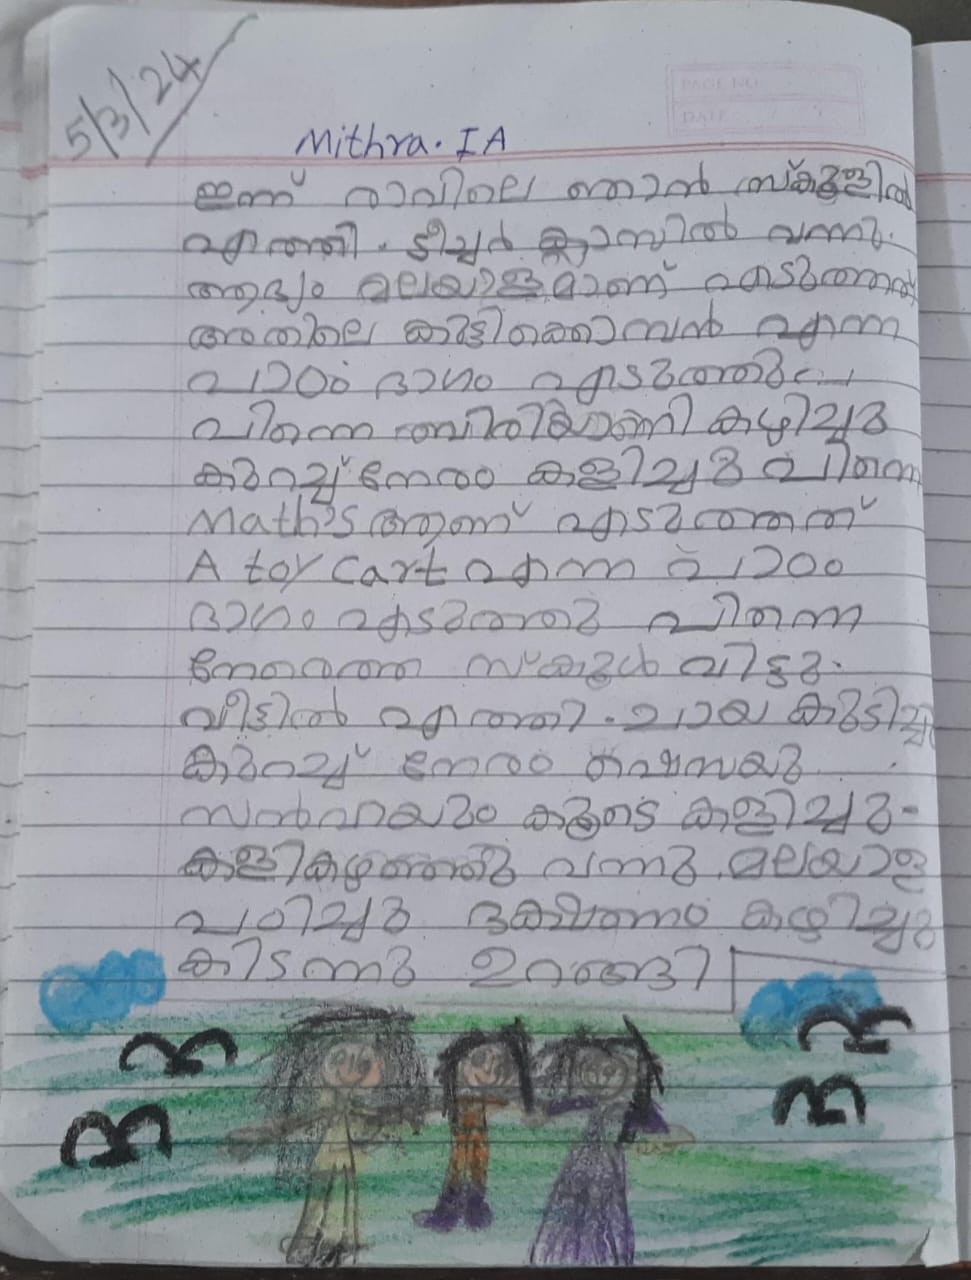 5/3/24
PAGE NO
DATE
Mithra. I A
ഇന്ന് രാവിലെ ഞാൻ സ്കൂളിൽ
എത്തി. ടീച്ചർ ക്ലാസിൽ വന്നു.
ആദ്യം മലയാളമാണ് എടുത്തത്
അതിലെ കുട്ടിക്കൊമ്പൻ എന്ന
പാഠം ഭാഗം എടുത്തു
പിന്നെ ബിരിയാണി കഴിച്ചു
കുറച്ച് നേരം കളിച്ചു പിന്നെ
Maths ആണ് എടുത്തത്
A toy cart എന്ന പാഠം
ഭാഗം എടുത്തു പിന്നെ
നേരത്തെ സ്കൂൾ വിട്ടു.
വീട്ടിൽ എത്തി. ചായ കുടിച്ചു
കുറച്ച് നേരം
കൂടെ കളിച്ചു-
വന്നു. മലയാള
പഠിച്ചു ഭക്ഷണം കഴിച്ചു
കിടന്നു ഉറങ്ങി